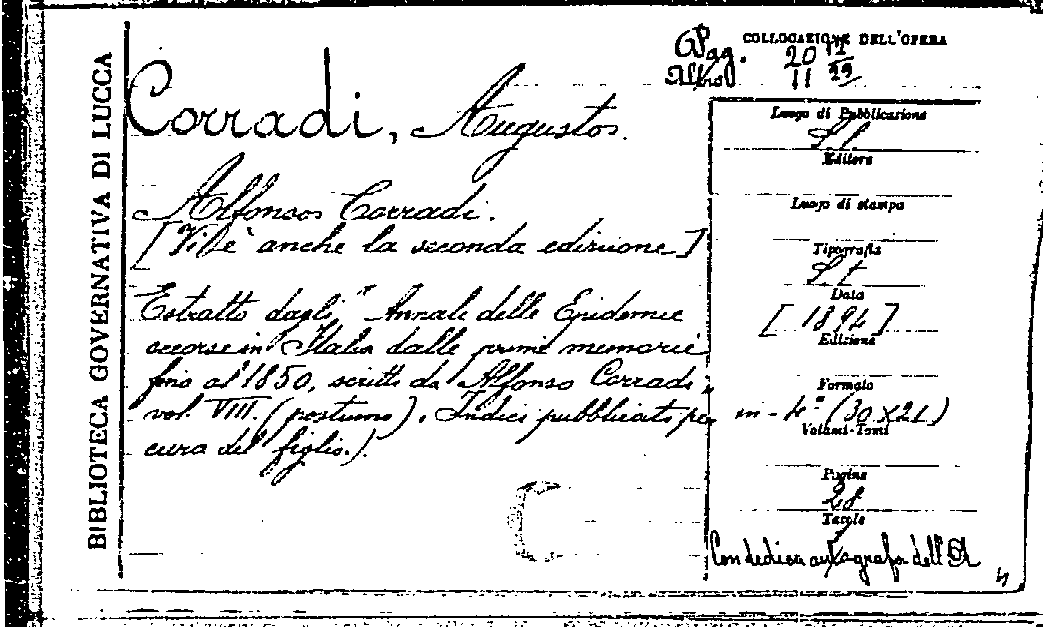 BIBLIOTECA GOVERNATIVA DI LUCCA
COLLOCAZIONE DELL'OPERA
Pag. 20 12
11 29
Corradi, Augusto.
Alfonso Corradi.
[Vi è anche la seconda edizione]
Estratto dagli "Annale delle Epidemie
occorse in Italia dalle prime memorie
fino al 1850, scritti da Alfonso Corradi",
vol. VIII. (postumo). Indici pubblicati per
cura del figlio.)
Luogo di Pubblicazione
S.l.
Editore
Luogo di stampa
Tipografia
S.t.
Data
[1894]
Edizione
Formato
in-4° (30x21)
Volumi-Tomi
Pagine
28
Tavole
/
Con dedica autografa dell'A